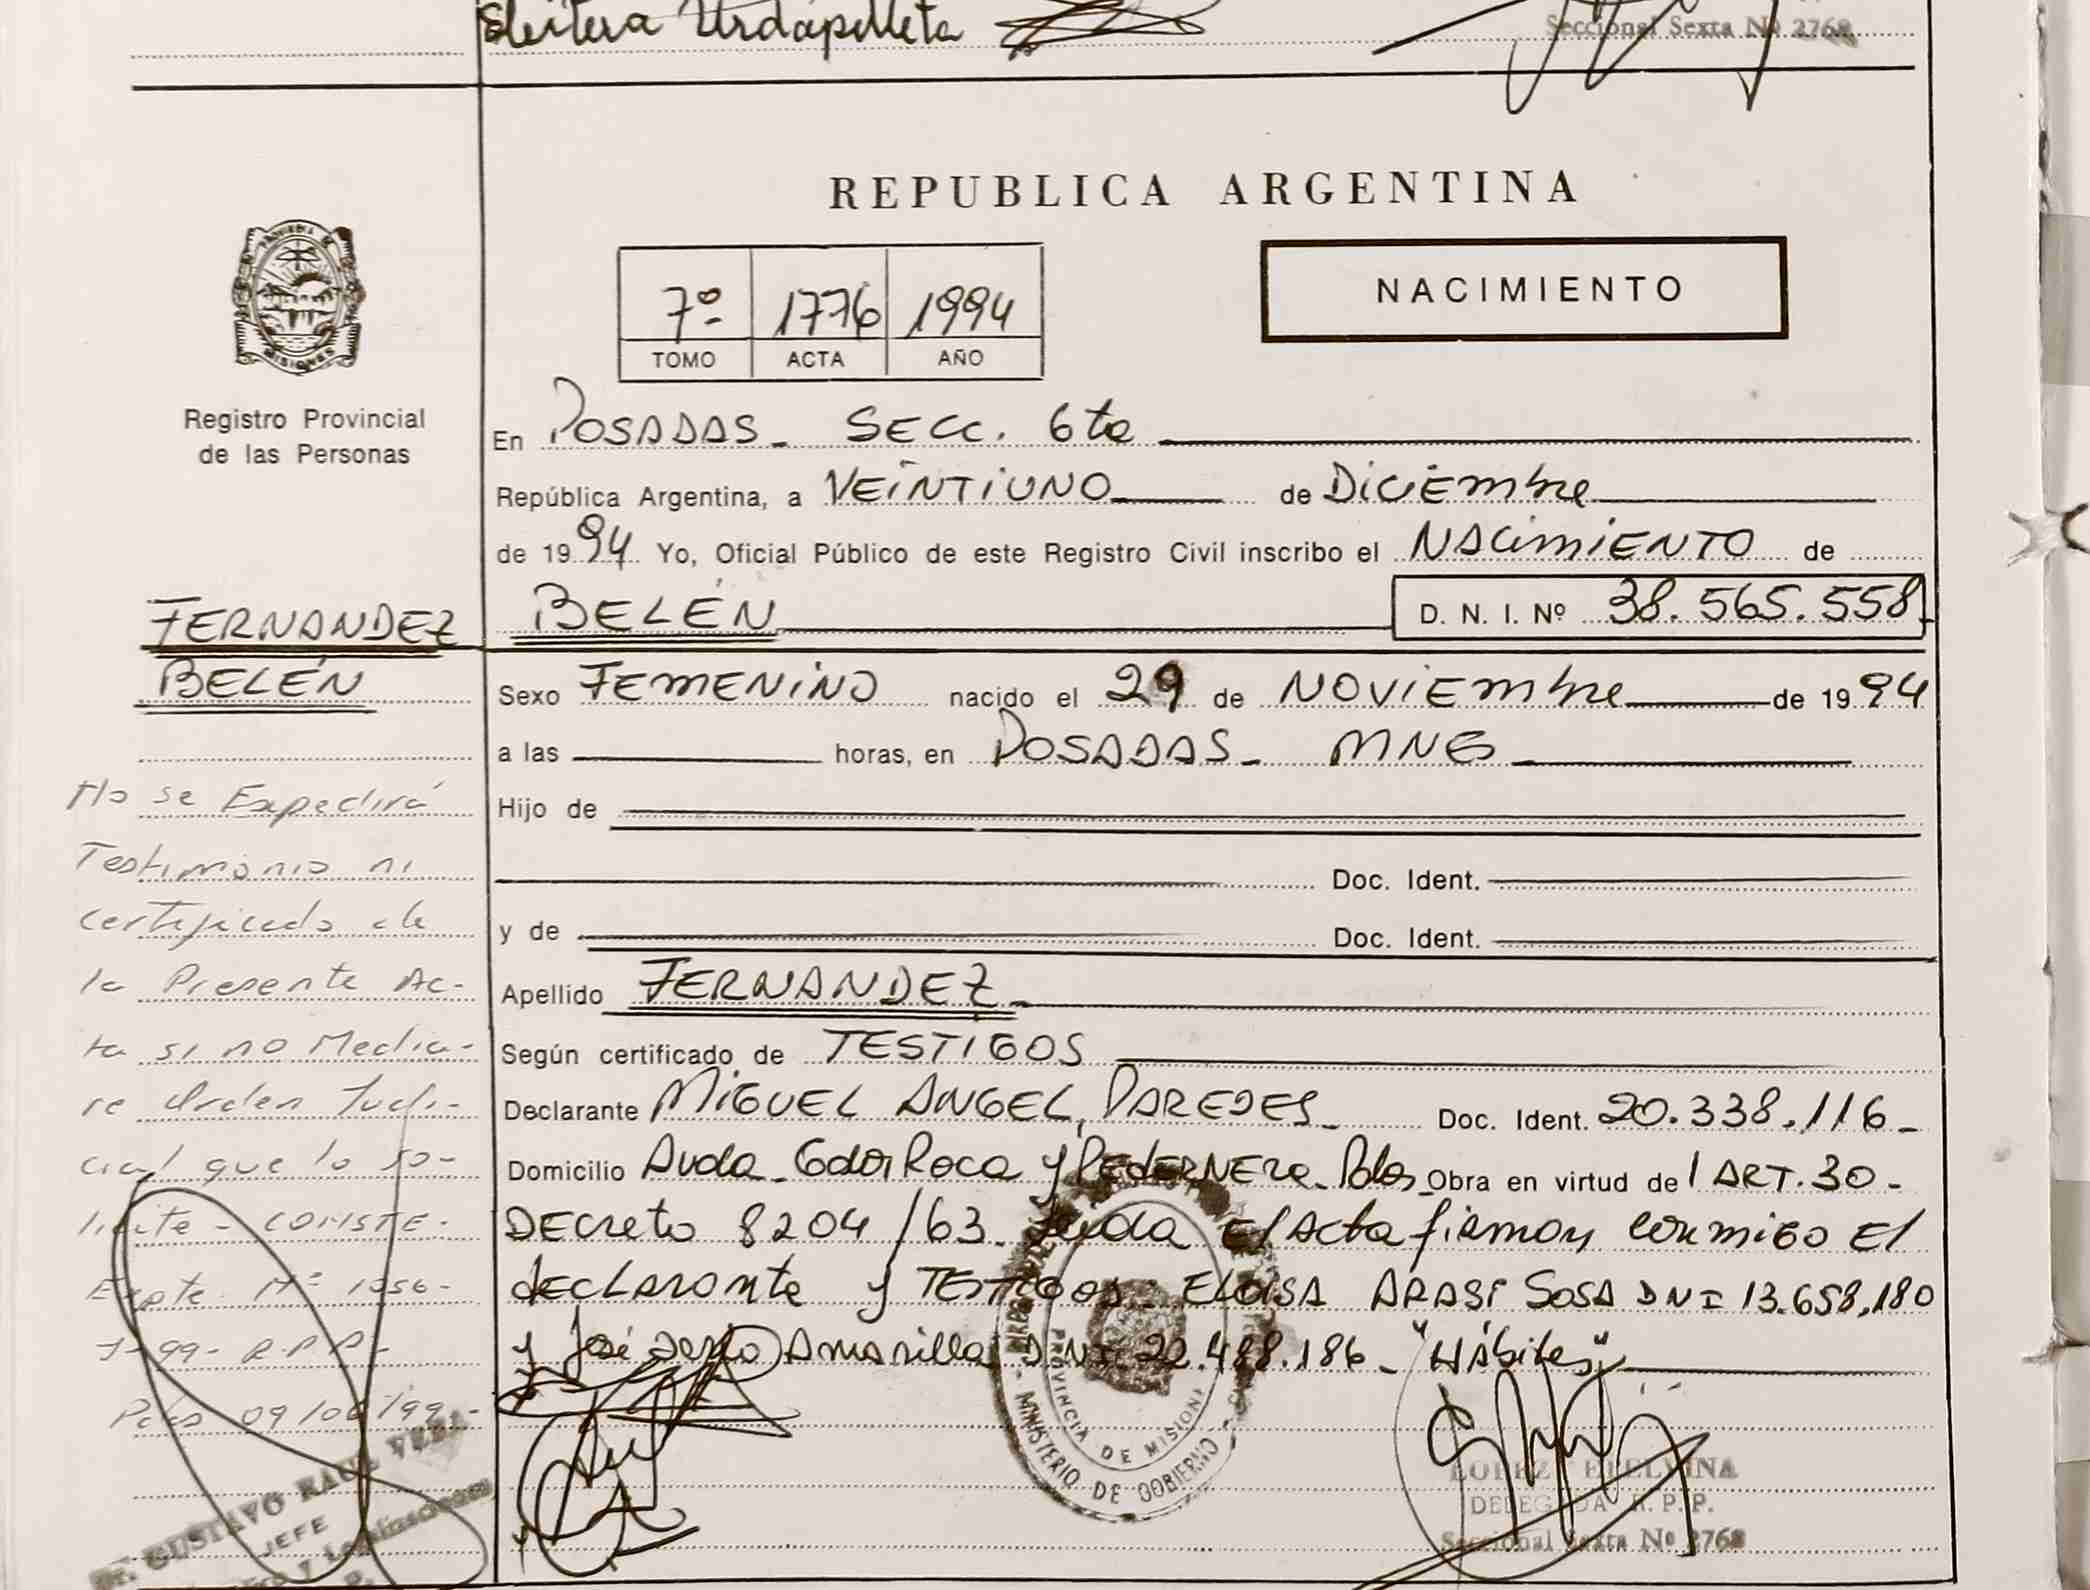 Eleitera Urdapilleta
Seccional Sexta Nº 2768
REPUBLICA ARGENTINA
7º 1776 1994
TOMO ACTA AÑO
NACIMIENTO
PROVINCIA DE
MISIONES
Registro Provincial
de las Personas
En POSADAS - SECC. 6ta
República Argentina, a VEINTIUNO de Diciembre
de 1994 Yo, Oficial Público de este Registro Civil inscribo el NACIMIENTO de
BELÉN D. N. I. Nº 38.565.558
FERNANDEZ
BELÉN
Sexo FEMENINO nacido el 29 de NOVIEMbre de 1994
a las horas, en POSADAS - MNES
Hijo de
Doc. Ident.
y de Doc. Ident.
Apellido FERNANDEZ
Según certificado de TESTIGOS
Declarante MIGUEL ANGEL PAREDES Doc. Ident. 20.338.116
Domicilio Avda. Roca y PEDERNERA - Pdas Obra en virtud del ART. 30 -
DECreto 8204/63. Leída El Acta firman conmigo El
dECLArante y TESTIGOS: ELOISA ARASI SOSA DNI 13.658.180
y José Amarilla DNI 22.488.186 - "Hábiles"
No se Expedirá
Testimonio ni
certificado de
la Presente Ac-
ta si no Media-
re Orden Judi-
cial que lo so-
licite - CONSTE.
Expte. Nº 1056-
J-99- R.P.P.-
Pdas 09/06/99-
Dr. GUSTAVO RAUL VERA
JEFE
y Legalizaciones
PROVINCIA DE MISIONES
MINISTERIO DE GOBIERNO
LOPEZ ETELVINA
DELEGADA R.P.P.
Seccional Sexta Nº 2768